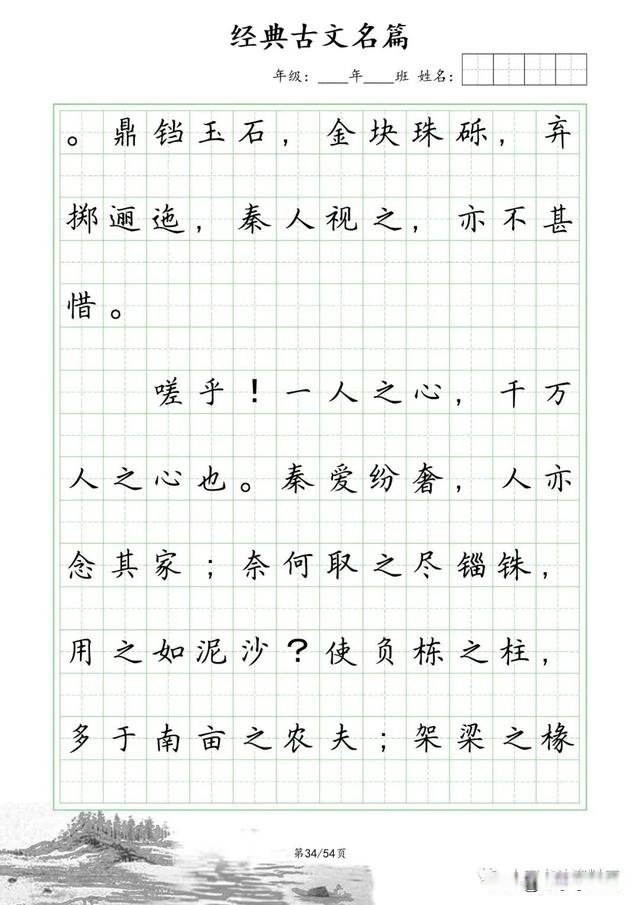 经典古文名篇
年级：____年____班 姓名：
。鼎铛玉石，金块珠砾，弃
掷逦迤，秦人视之，亦不甚
惜。
嗟乎！一人之心，千万
人之心也。秦爱纷奢，人亦
念其家；奈何取之尽锱铢，
用之如泥沙？使负栋之柱，
多于南亩之农夫；架梁之椽
第34/54页